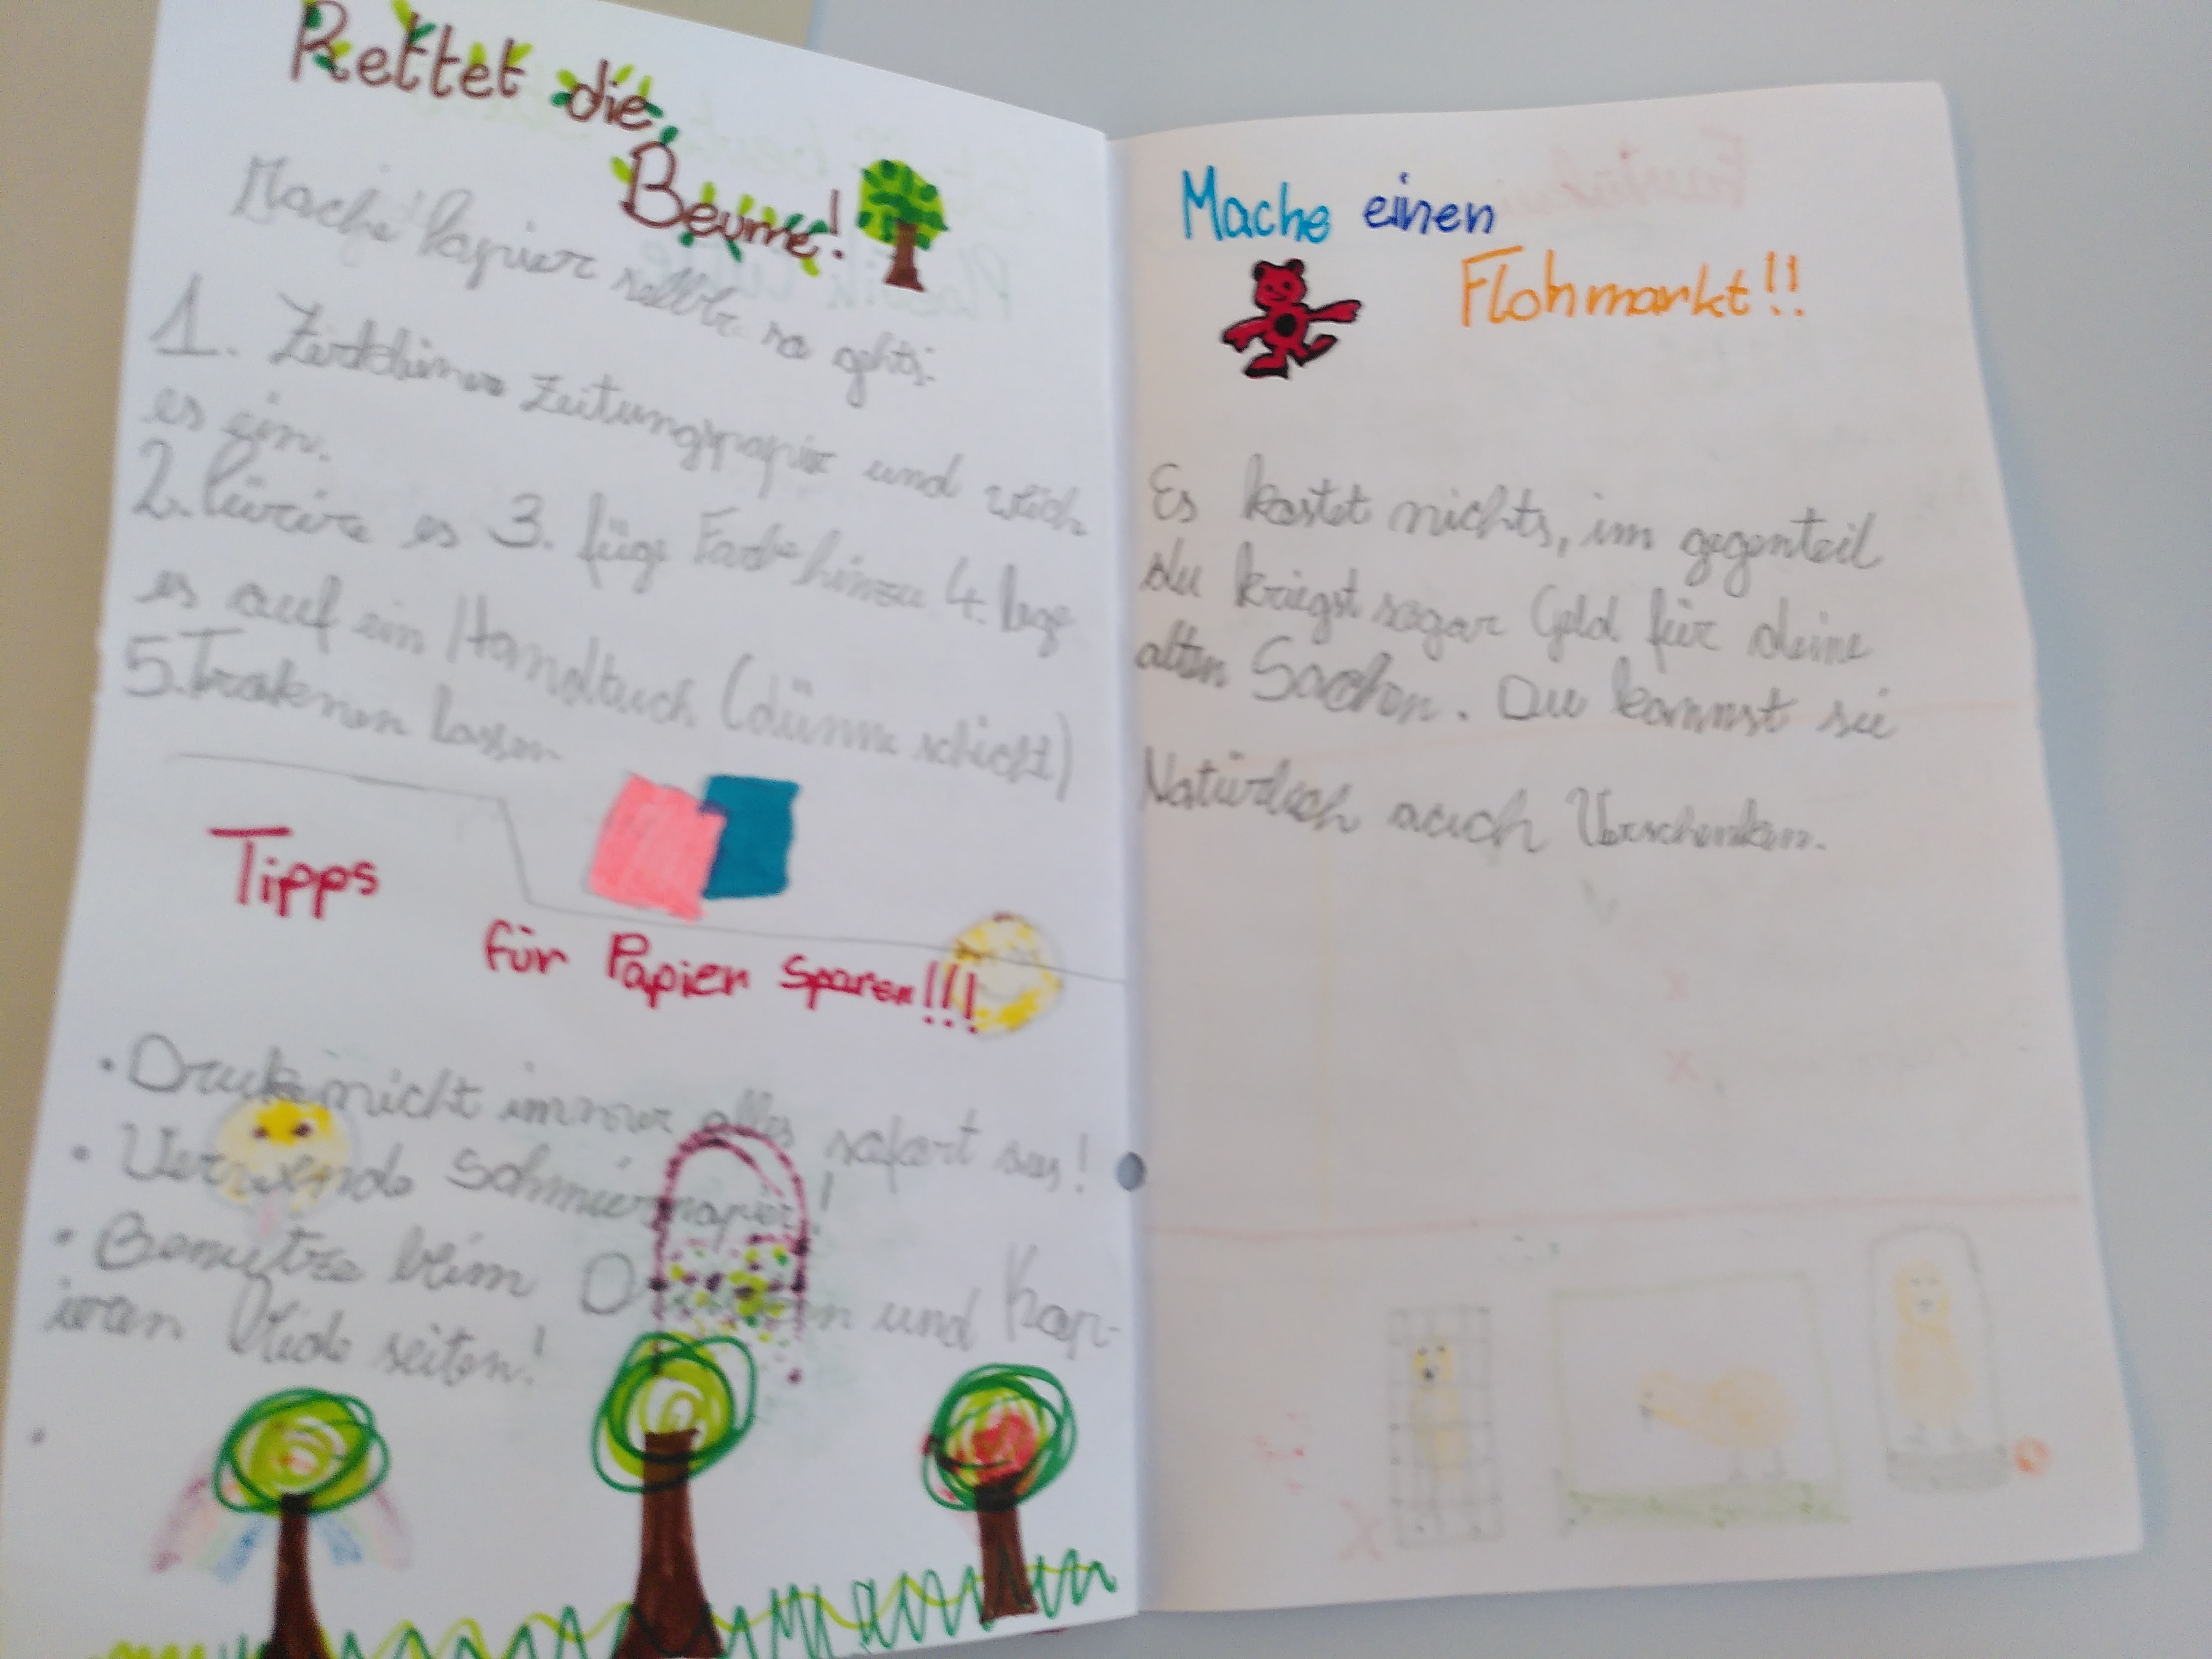 Rettet die
Beume!
Mache Papier selbst so gehts:
1. Zeitungspapier und weich
es ein.
2. Püriere es 3. füge Farbe hinzu 4. lege
es auf ein Handtuch (dünne schicht)
5. Trokenen lassen
Tipps
für Papier sparen!!!
• Drucke nicht immer alles sofort aus!
• Verwende Schmierpapier!
• Benutze beim Drucken und Kop-
ieren Beide seiten!
Mache einen
Flohmarkt!!
Es kostet nichts, im gegenteil
du kriegst sogar Geld für deine
alten Sachen. Du kannst sie
Natürlich auch Verschenken.